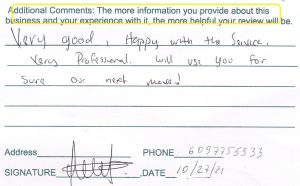 Additional Comments: The more information you provide about this
business and your experience with it, the more helpful your review will be.
Very good, Happy with the Service.
Very Professional. will use you for
Sure our next moves!
Address PHONE 6097755333
SIGNATURE DATE 10/27/21